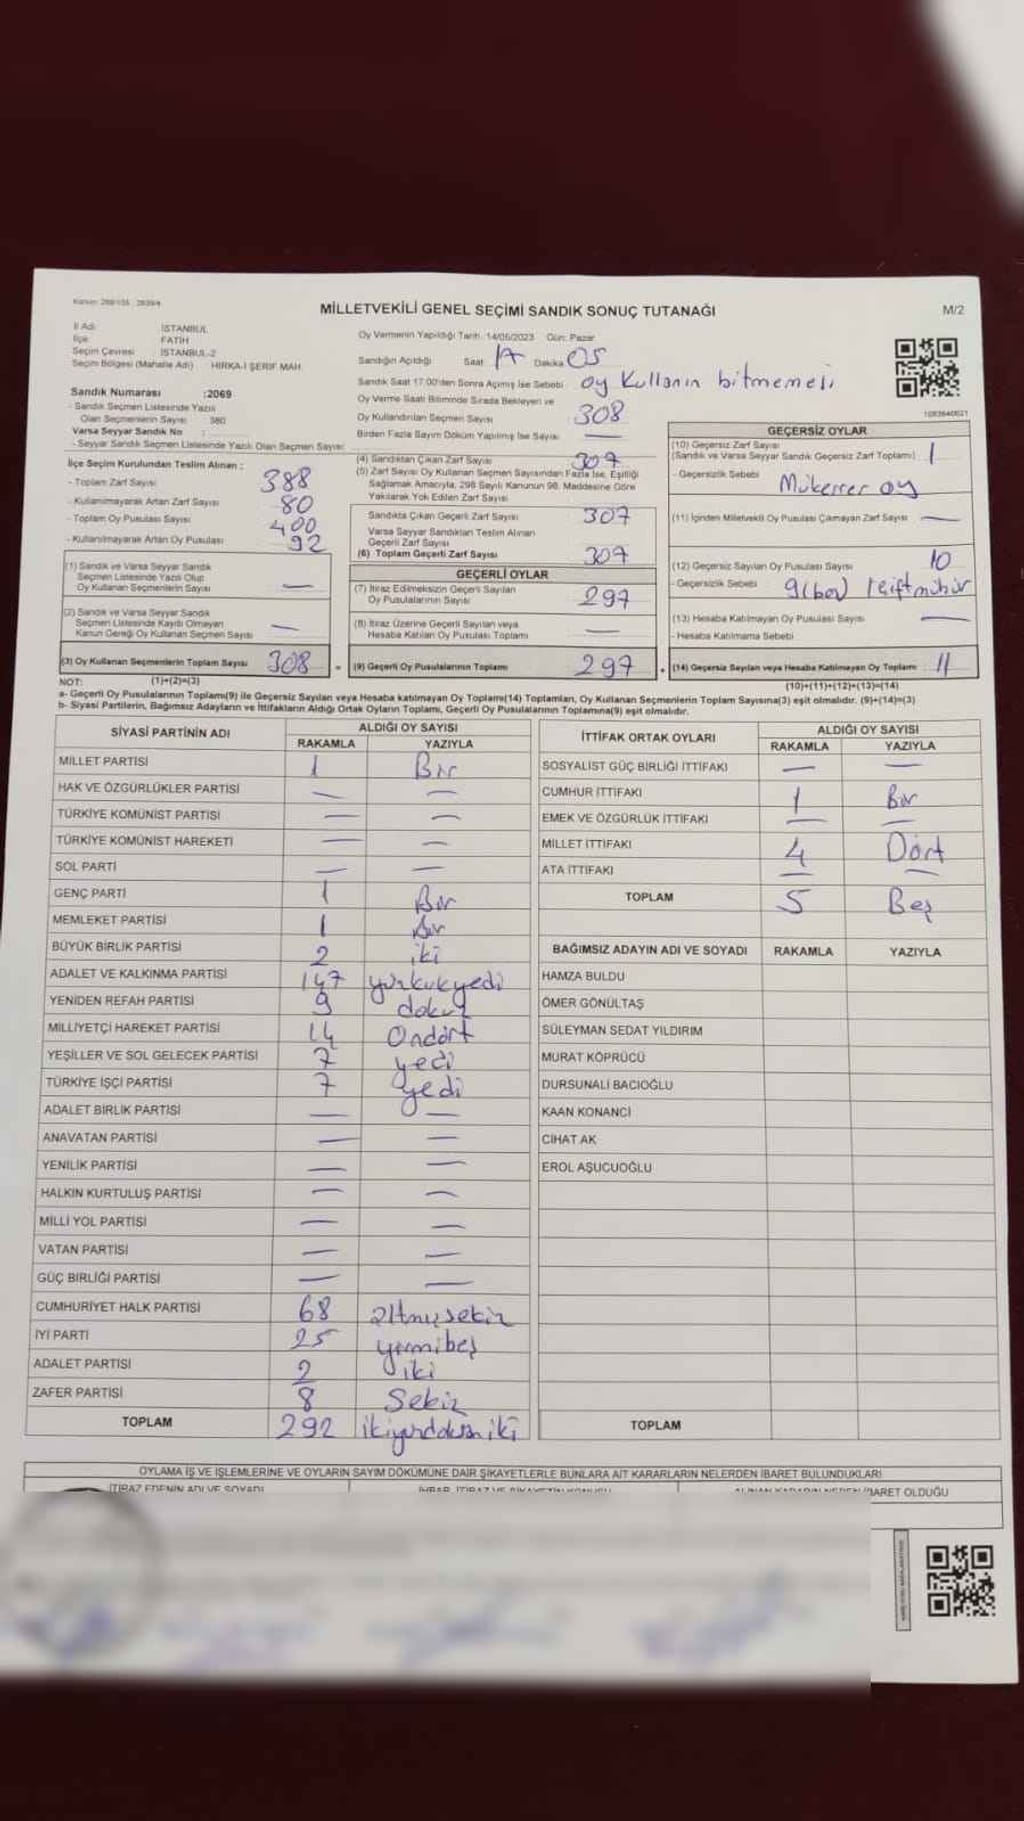 MİLLETVEKİLİ GENEL SEÇİMİ SANDIK SONUÇ TUTANAĞI
M/2
İl Adı İSTANBUL
İlçe FATİH
Seçim Çevresi İSTANBUL-2
Seçim Bölgesi (Mahalle Adı) HIRKA-İ ŞERİF MAH.
Sandık Numarası :2069
- Sandık Seçmen Listesinde Yazılı
Olan Seçmenlerin Sayısı 380
Varsa Seyyar Sandık No :
- Seyyar Sandık Seçmen Listesinde Yazılı Olan Seçmen Sayısı:
Oy Vermenin Yapıldığı Tarih: 14/05/2023 Gün: Pazar
Sandığın Açıldığı Saat 17 Dakika 05
Sandık Saat 17.00'den Sonra Açılmış İse Sebebi oy kullanın bitmemesi
Oy Verme Saati Bitiminde Sırada Bekleyen ve
Oy Kullandırılan Seçmen Sayısı 308
Birden Fazla Sayım Döküm Yapılmış İse Sayısı —
İlçe Seçim Kurulundan Teslim Alınan :
- Toplam Zarf Sayısı 388
- Kullanılmayarak Artan Zarf Sayısı 80
- Toplam Oy Pusulası Sayısı 400
- Kullanılmayarak Artan Oy Pusulası 92
(1) Sandık ve Varsa Seyyar Sandık
Seçmen Listesinde Yazılı Olup
Oy Kullanan Seçmenlerin Sayısı —
(2) Sandık ve Varsa Seyyar Sandık
Seçmen Listesinde Kaydı Olmayan
Kanun Gereği Oy Kullanan Seçmen Sayısı —
(3) Oy Kullanan Seçmenlerin Toplam Sayısı 308
(1)+(2)=(3)
(4) Sandıktan Çıkan Zarf Sayısı 307
(5) Zarf Sayısı Oy Kullanan Seçmen Sayısından Fazla İse, Eşitliği
Sağlamak Amacıyla, 298 Sayılı Kanunun 98. Maddesine Göre
Yakılarak Yok Edilen Zarf Sayısı
Sandıkta Çıkan Geçerli Zarf Sayısı 307
Varsa Seyyar Sandıktan Teslim Alınan
Geçerli Zarf Sayısı
(6) Toplam Geçerli Zarf Sayısı 307
GEÇERLİ OYLAR
(7) İtiraz Edilmeksizin Geçerli Sayılan
Oy Pusulalarının Sayısı 297
(8) İtiraz Üzerine Geçerli Sayılan veya
Hesaba Katılan Oy Pusulası Toplamı —
= (9) Geçerli Oy Pusulalarının Toplamı 297
1083640021
GEÇERSİZ OYLAR
(10) Geçersiz Zarf Sayısı
(Sandık ve Varsa Seyyar Sandık Geçersiz Zarf Toplamı) 1
- Geçersizlik Sebebi Mükerrer oy
(11) İçinden Milletvekili Oy Pusulası Çıkmayan Zarf Sayısı —
(12) Geçersiz Sayılan Oy Pusulası Sayısı 10
- Geçersizlik Sebebi 9(boş) 1çift mühür
(13) Hesaba Katılmayan Oy Pusulası Sayısı —
- Hesaba Katılmama Sebebi
+ (14) Geçersiz Sayılan veya Hesaba Katılmayan Oy Toplamı 11
(10)+(11)+(12)+(13)=(14)
NOT:
a- Geçerli Oy Pusulalarının Toplamı(9) ile Geçersiz Sayılan veya Hesaba katılmayan Oy Toplamı(14) Toplamları, Oy Kullanan Seçmenlerin Toplam Sayısına(3) eşit olmalıdır. (9)+(14)=(3)
b- Siyasi Partilerin, Bağımsız Adayların ve İttifakların Aldığı Ortak Oyların Toplamı, Geçerli Oy Pusulalarının Toplamına(9) eşit olmalıdır.
SİYASİ PARTİNİN ADI ALDIĞI OY SAYISI
RAKAMLA YAZIYLA
MİLLET PARTİSİ 1 Bir
HAK VE ÖZGÜRLÜKLER PARTİSİ — —
TÜRKİYE KOMÜNİST PARTİSİ — —
TÜRKİYE KOMÜNİST HAREKETİ — —
SOL PARTİ — —
GENÇ PARTİ 1 Bir
MEMLEKET PARTİSİ 1 Bir
BÜYÜK BİRLİK PARTİSİ 2 iki
ADALET VE KALKINMA PARTİSİ 147 yüzkırkyedi
YENİDEN REFAH PARTİSİ 9 dokuz
MİLLİYETÇİ HAREKET PARTİSİ 14 Ondört
YEŞİLLER VE SOL GELECEK PARTİSİ 7 yedi
TÜRKİYE İŞÇİ PARTİSİ 7 yedi
ADALET BİRLİK PARTİSİ — —
ANAVATAN PARTİSİ — —
YENİLİK PARTİSİ — —
HALKIN KURTULUŞ PARTİSİ — —
MİLLİ YOL PARTİSİ — —
VATAN PARTİSİ — —
GÜÇ BİRLİĞİ PARTİSİ — —
CUMHURİYET HALK PARTİSİ 68 altmışsekiz
İYİ PARTİ 25 yirmibeş
ADALET PARTİSİ 2 iki
ZAFER PARTİSİ 8 Sekiz
TOPLAM 292 ikiyüzdoksaniki
İTTİFAK ORTAK OYLARI ALDIĞI OY SAYISI
RAKAMLA YAZIYLA
SOSYALİST GÜÇ BİRLİĞİ İTTİFAKI — —
CUMHUR İTTİFAKI 1 Bir
EMEK VE ÖZGÜRLÜK İTTİFAKI — —
MİLLET İTTİFAKI 4 Dört
ATA İTTİFAKI — —
TOPLAM 5 Beş
BAĞIMSIZ ADAYIN ADI VE SOYADI RAKAMLA YAZIYLA
HAMZA BULDU
ÖMER GÖNÜLTAŞ
SÜLEYMAN SEDAT YILDIRIM
MURAT KÖPRÜCÜ
DURSUNALİ BACIOĞLU
KAAN KONANCİ
CİHAT AK
EROL AŞUCUOĞLU
TOPLAM
OYLAMA İŞ VE İŞLEMLERİNE VE OYLARIN SAYIM DÖKÜMÜNE DAİR ŞİKAYETLERLE BUNLARA AİT KARARLARIN NELERDEN İBARET BULUNDUKLARI
İTİRAZ EDENİN ADI VE SOYADI
İBARET OLDUĞU